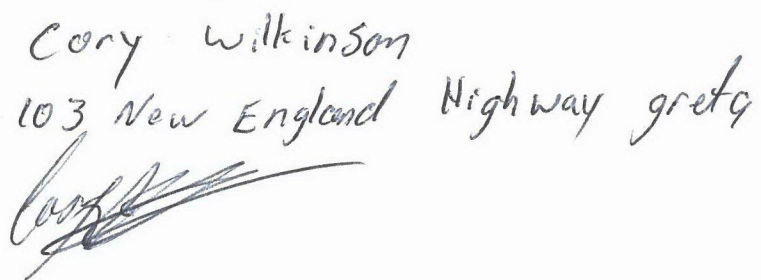 Cory Wilkinson
103 New England Highway greta